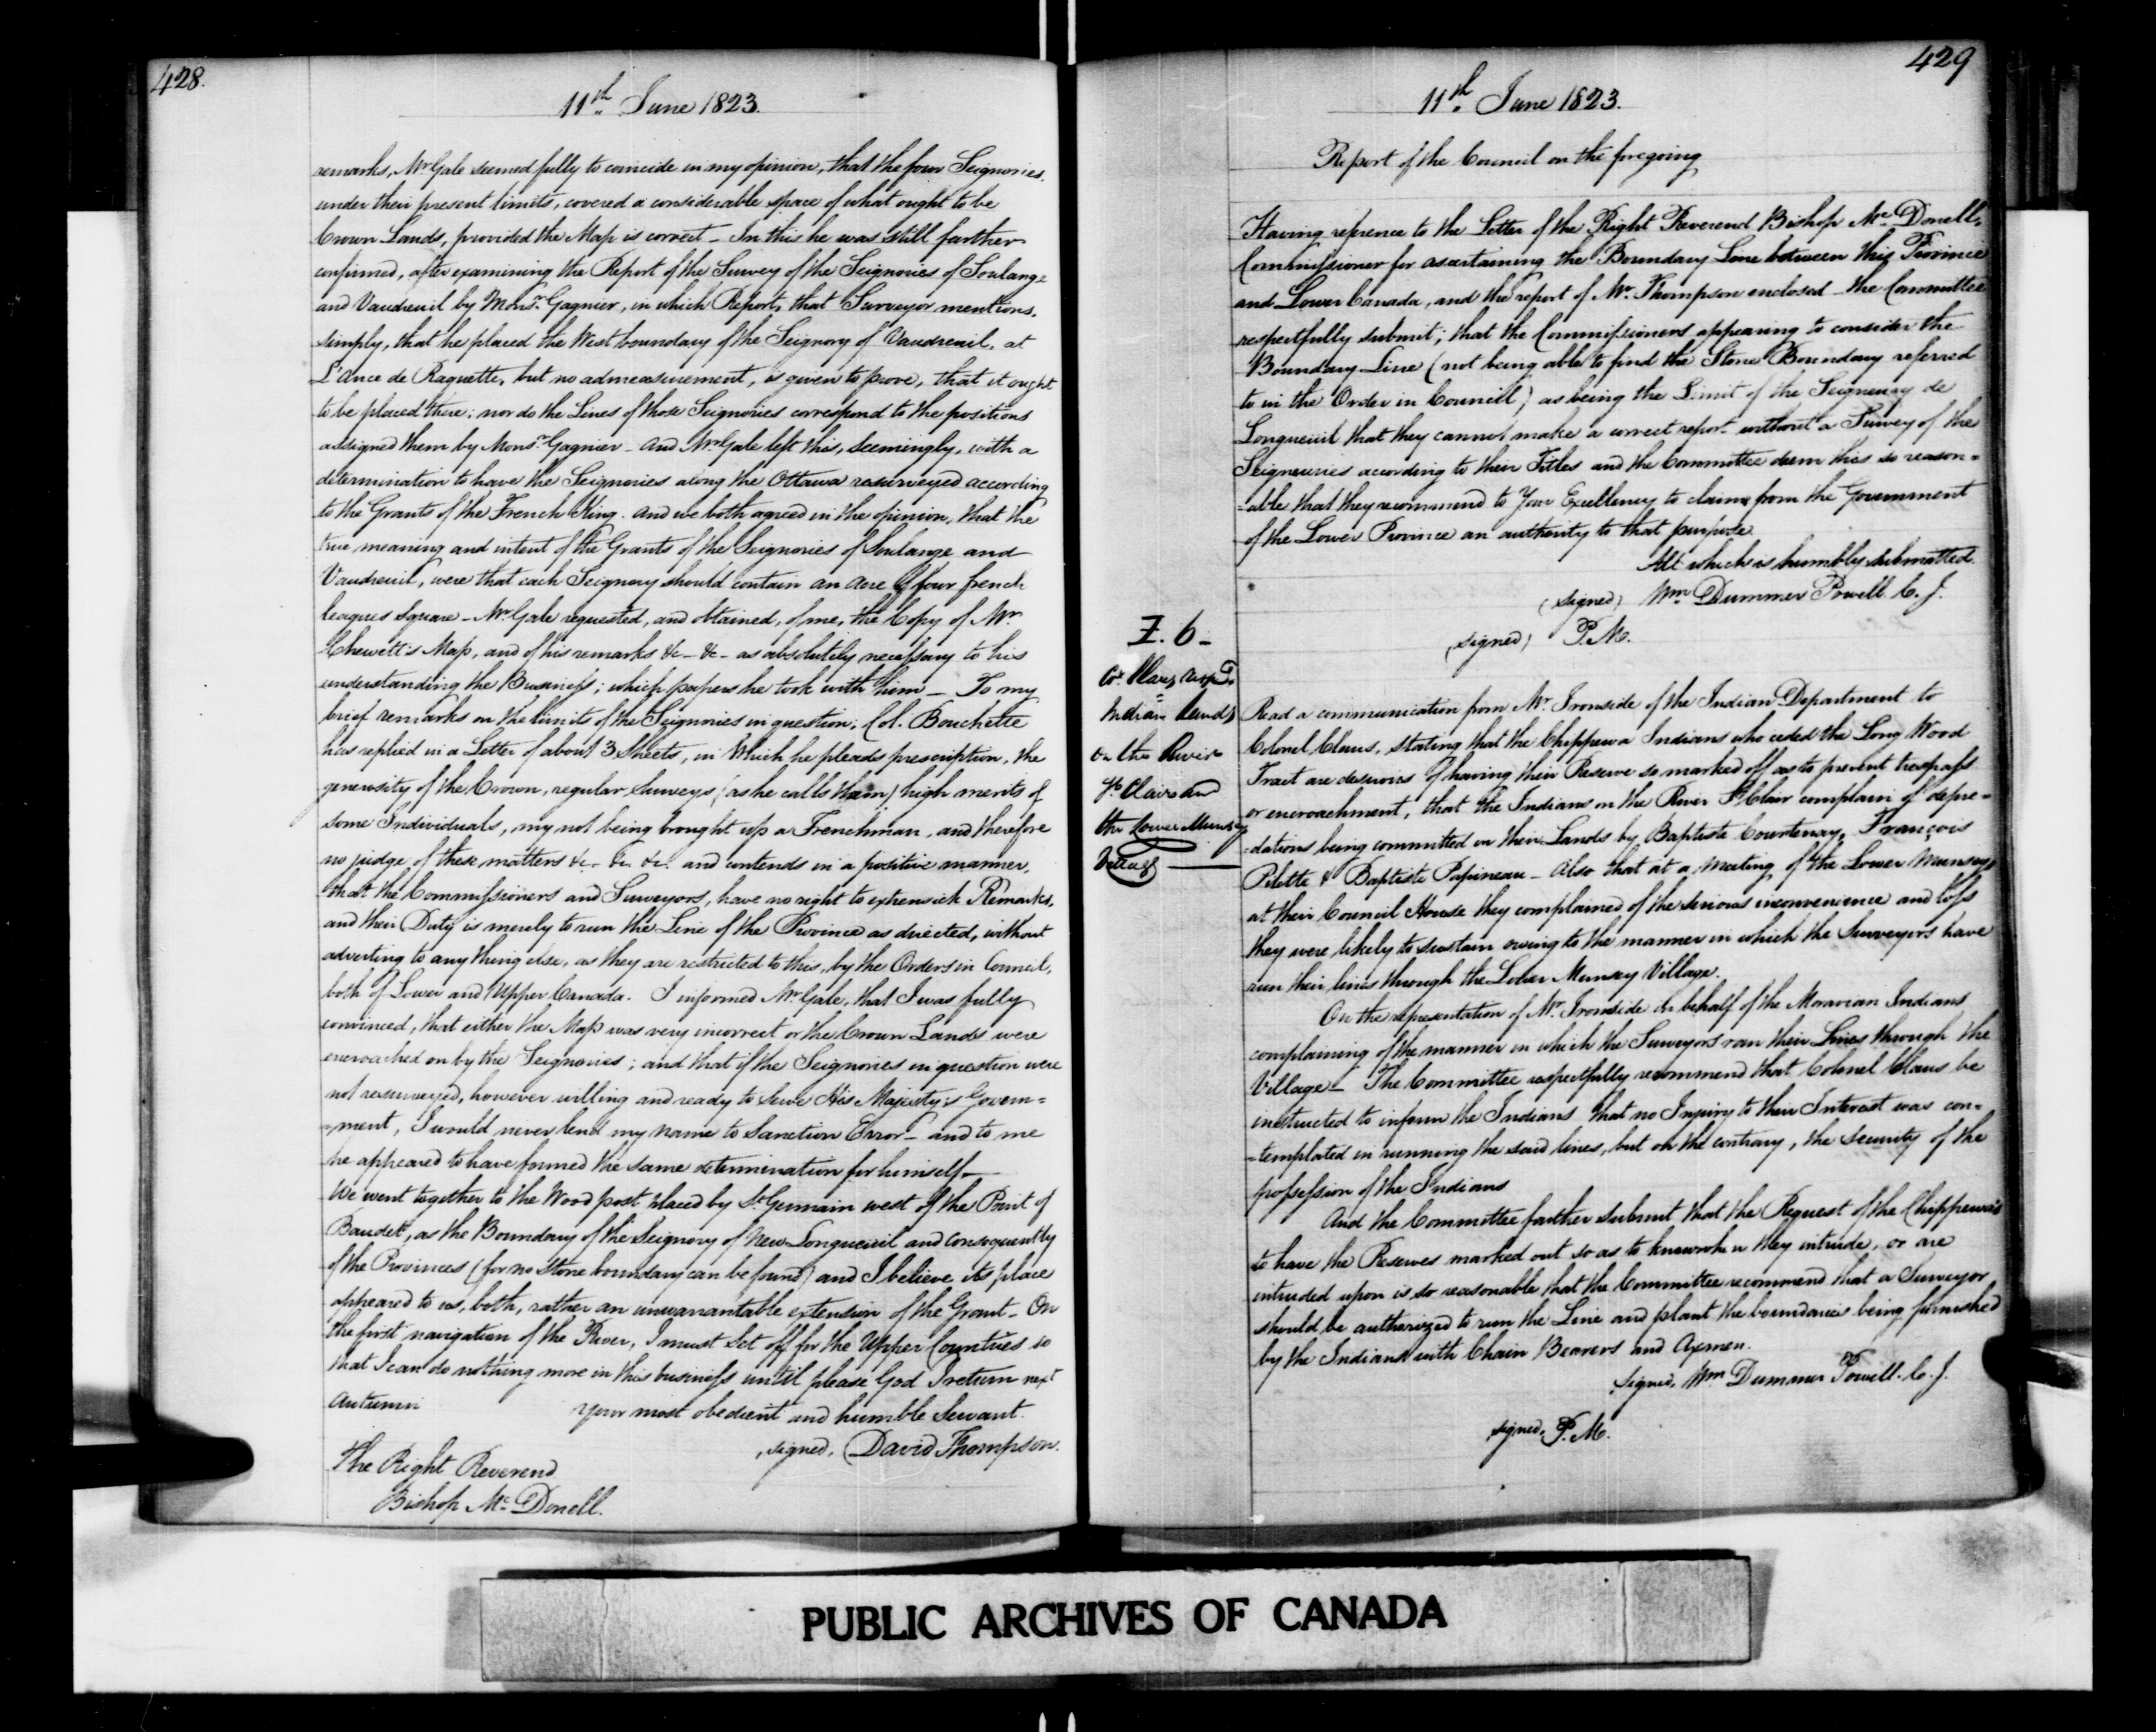 428.
11th June 1823.
remarks, Mr Gale seemed fully to coincide in my opinion, that the four Seignories,
under their present limits, covered a considerable space of what ought to be
Crown Lands, provided the Map is correct _ In this he was still farther
confirmed, after examining the Report of the Survey of the Seignories of Soulange
and Vaudreuil by Monsr. Gagnier, in which Report, that Surveyor mentions,
simply, that he placed the West boundary of the Seignory of Vaudreuil, at
L'Ance de Raquette, but no admeasurement, is given to prove, that it ought
to be placed there; nor do the Lines of those Seignories correspond to the positions
assigned them by Monsr. Gagnier _ And Mr Gale left this, seemingly, with a
determination to have the Seignories along the Ottawa resurveyed according
to the Grants of the French King. And we both agreed in the opinion, that the
true meaning and intent of the Grants of the Seignories of Soulange and
Vaudreuil, were that each Seignory should contain an Area of four french
leagues square _ Mr Gale requested, and obtained, of me, the Copy of Mr
Chewett's Map, and of his remarks &c _ &c _ as absolutely necessary to his
understanding the Business; which papers he took with him _ To my
brief remarks on the limits of the Seignories in question, Col. Bouchette
has replied in a Letter of about 3 Sheets, in which he pleads prescription, the
generosity of the Crown, regular Surveys (as he calls them) high merits of
some Individuals, my not being brought up a Frenchman, and therefore
no judge of these matters &c _ &c &c. and contends in a positive manner,
that the Commissioners and Surveyors, have no right to extensive Remarks,
and their Duty is merely to run the Line of the Province as directed, without
adverting to any thing else, as they are restricted to this, by the Orders in Council,
both of Lower and Upper Canada. I informed Mr Gale, that I was fully
convinced, that either the Map was very incorrect or the Crown Lands were
encroached on by the Seignories; and that if the Seignories in question were
not resurveyed, however willing and ready to serve His Majesty's Govern=
=ment, I would never lend my name to Sanction Error _ and to me
he appeared to have formed the same determination for himself _
We went together to the Wood post placed by St. Germain west of the Point of
Baudet, as the Boundary of the Seignory of New Longueuil and consequently
of the Provinces (for no Stone boundary can be found) and I believe its place
appeared to us, both, rather an unwarrantable extension of the Grant _ On
the first navigation of the River, I must set off for the Upper Countries so
that I can do nothing more in this business until please God I return next
Autumn
your most obedient and humble Servant.
signed, David Thompson.
The Right Reverend
Bishop Mc Donell.
429
11th June 1823.
Report of the Council on the foregoing
Having reference to the Letter of the Right Reverend Bishop Mc Donell,
Commissioner for ascertaining the Boundary Line between this Province
and Lower Canada, and the report of Mr. Thompson enclosed _ the Committee
respectfully submit; that the Commissioners appearing to consider the
Boundary Line (not being able to find the Stone Boundary referred
to in the Order in Council) as being the Limit of the Seigneury de
Longueuil that they cannot make a correct report without a Survey of the
Seigneuries according to their Titles and the Committee deem this so reason=
=able that they recommend to Your Excellency to claim from the Government
of the Lower Province an authority to that purpose.
All which is humbly submitted.
(signed) Wm Dummer Powell C. J.
(signed) P. M.
Z. 6 _
Col. Claus resp.
Indian Lands
on the River
St Clair and
the Lower Munsey
Village
Read a communication from Mr. Ironside of the Indian Department to
Colonel Claus, stating that the Chippewa Indians who ceded the Long Wood
Tract are desirous of having their Reserve so marked off as to prevent trespass
or encroachment, that the Indians on the River St Clair complain of depre=
=dations being committed on their Lands by Baptiste Courtenay, François
Pilette & Baptiste Papineau _ Also that at a meeting of the Lower Munseys
at their Council House they complained of the serious inconvenience and loss
they were likely to sustain owing to the manner in which the Surveyors have
run their lines through the Lower Munsey Village.
On the representation of Mr. Ironside in behalf of the Moravian Indians
complaining of the manner in which the Surveyors ran their Lines through the
Village _ The Committee respectfully recommend that Colonel Claus be
instructed to inform the Indians that no Injury to their Interest was con=
=templated in running the said lines, but on the contrary, the security of the
possession of the Indians
And the Committee farther submit that the Request of the Chippewa's
to have the Reserves marked out so as to know when they intrude, or are
intruded upon is so reasonable that the Committee recommend that a Surveyor
should be authorized to run the Line and plant the boundaries being furnished
by the Indians with Chain Bearers and Axmen.
signed, Wm Dummer Powell. C. J.
signed, P. M.
PUBLIC ARCHIVES OF CANADA